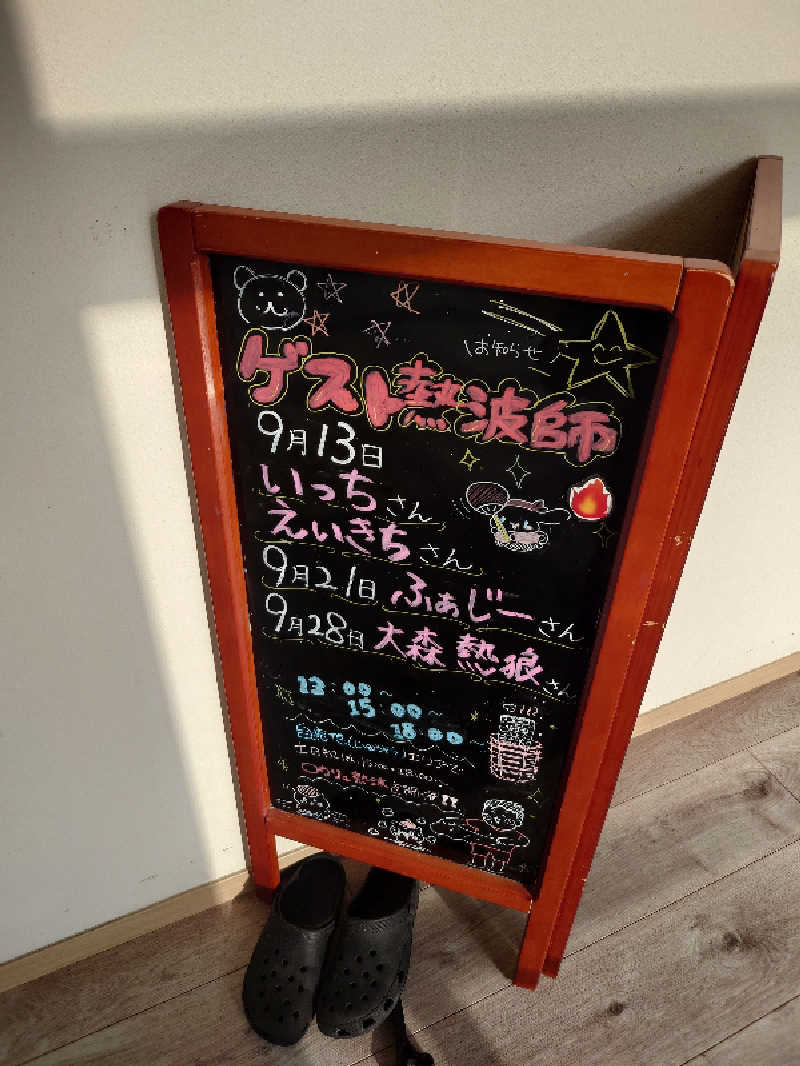 お知らせ
ゲスト熱波師
9月13日
いっちさん
えいきちさん
9月21日 ふぁじーさん
9月28日 大森熱狼さん
13:00〜
15:00〜
18:00〜